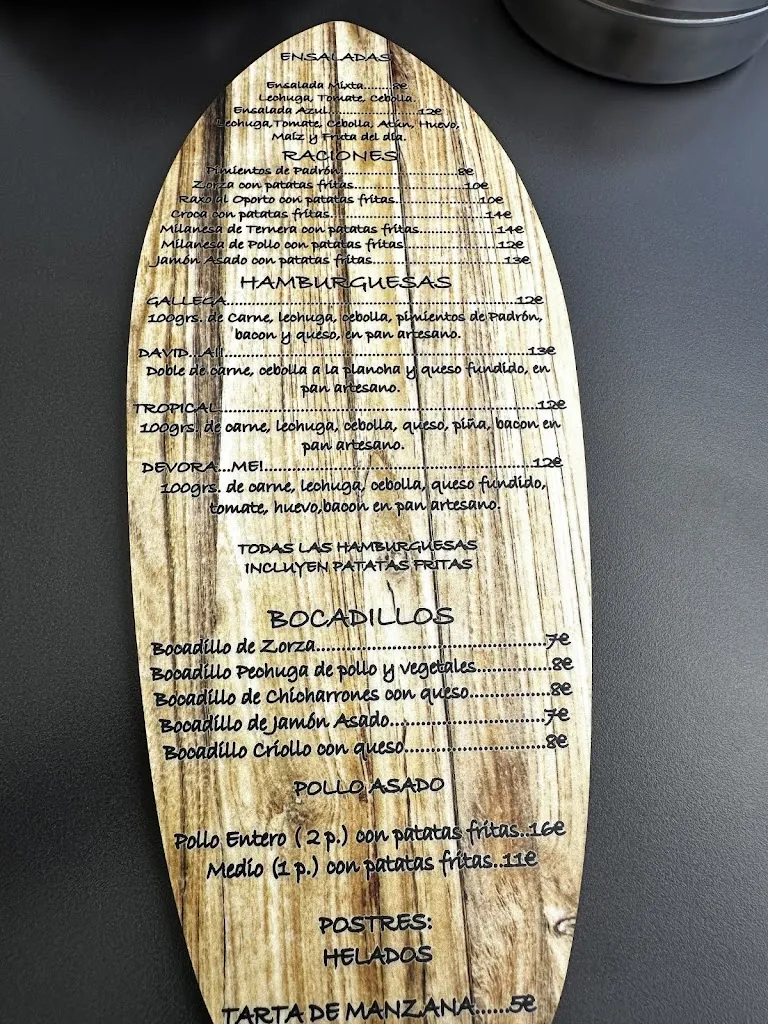 ENSALADAS
Ensalada Mixta.......8e
Lechuga, Tomate, Cebolla.
Ensalada Azul.......................12e
Lechuga,Tomate, Cebolla, Atún, Huevo,
Maíz y Fruta del día.
RACIONES
Pimientos de Padrón.............................8e
Zorza con patatas fritas...........................10e
Raxo al Oporto con patatas fritas....................10e
Croca con patatas fritas......................................14e
Milanesa de Ternera con patatas fritas...................14e
Milanesa de Pollo con patatas fritas.......................12e
Jamón Asado con patatas fritas................................13e
HAMBURGUESAS
GALLEGA......................................................12e
100grs. de Carne, lechuga, cebolla, pimientos de Padrón,
bacon y queso, en pan artesano.
DAVID...A!!.........................................................13e
Doble de carne, cebolla a la plancha y queso fundido, en
pan artesano.
TROPICAL..........................................................12e
100grs. de carne, lechuga, cebolla, queso, piña, bacon en
pan artesano.
DEVORA...ME!..................................................12e
100grs. de carne, lechuga, cebolla, queso fundido,
tomate, huevo,bacon en pan artesano.
TODAS LAS HAMBURGUESAS
INCLUYEN PATATAS FRITAS
BOCADILLOS
Bocadillo de Zorza.......................................7e
Bocadillo Pechuga de pollo y vegetales.............8e
Bocadillo de Chicharrones con queso..............8e
Bocadillo de Jamón Asado..........................7e
Bocadillo Criollo con queso.........................8e
POLLO ASADO
Pollo Entero ( 2 p.) con patatas fritas..16e
Medio (1 p.) con patatas fritas..11e
POSTRES:
HELADOS
TARTA DE MANZANA......5e